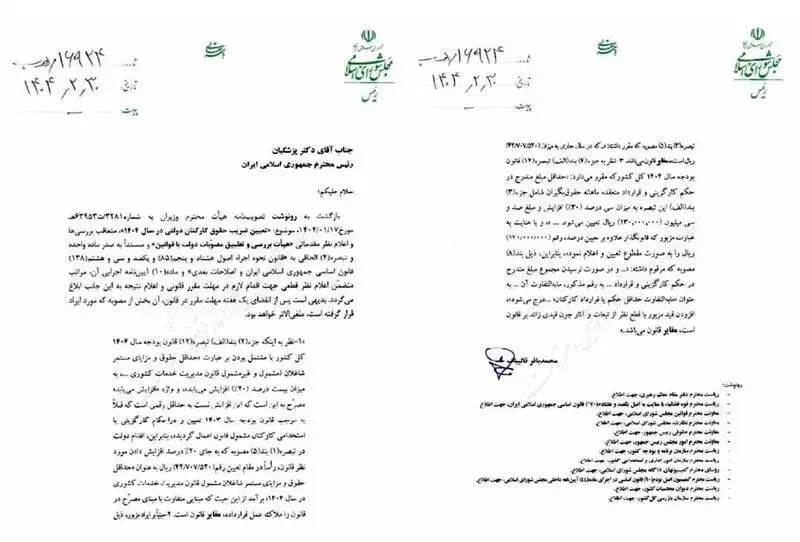 جمهوری اسلامی ایران
مجلس شورای اسلامی
رئیس
۱۶۹۲۴
تاریخ:
۱۴۰۴٫۲٫۳۰
پیوست:
جناب آقای دکتر پزشکیان
رئیس محترم جمهوری اسلامی ایران
سلام علیکم؛
بازگشت به رونوشت تصویب‌نامه هیأت محترم وزیران به شماره ۳۲۸۱/ت۶۳۹۵۳هـ
مورخ ۱۴۰۴/۰۱/۱۷، موضوع: «تعیین ضریب حقوق کارکنان دولتی در سال ۱۴۰۴»، متعاقب بررسی‌ها
و اعلام نظر مقدماتی «هیأت بررسی و تطبیق مصوّبات دولت با قوانین» و مستنداً به صدر ماده واحده
و تبصره(۴) الحاقی به «قانون نحوه اجراء اصول هشتاد و پنجم(۸۵) و یکصد و سی و هشتم(۱۳۸)
قانون اساسی جمهوری اسلامی ایران و اصلاحات بعدی» و ماده(۱۰) آیین‌نامه اجرایی آن، مراتب
متضمّن اعلام نظر قطعی جهت اقدام لازم در مهلت مقرر قانونی و اعلام نتیجه به این جانب ابلاغ
می‌گردد. بدیهی است پس از انقضای یک هفته مهلت مقرر در قانون، آن بخش از مصوبه که مورد ایراد
قرار گرفته است، ملغی‌الاثر خواهد بود.
«۱-نظر به اینکه جزء(۲) بند(الف) تبصره(۱۲) قانون بودجه سال ۱۴۰۴
کل کشور با مشتمل بودن بر عبارت «حداقل حقوق و مزایای مستمر
شاغلان (مشمول و غیرمشمول قانون مدیریت خدمات کشوری ... به
میزان بیست درصد (۲۰٪) افزایش می‌یابد»، و واژه «افزایش می‌یابد»
مصرّح به این است که این افزایش نسبت به حداقل رقمی است که قبلاً
به موجب قانون بودجه سال ۱۴۰۳ تعیین و در احکام کارگزینی یا
استخدامی کارکنان مشمول قانون اعمال گردیده، بنابراین، اقدام دولت
در تبصره(۱) بند(۵) مصوبه که به جای ۲۰٪ درصد افزایش دادن مورد
نظر قانون، رأساً در مقام تعیین رقم(۴۲/۷۰۷/۵۲۰) ریال به عنوان «حداقل
حقوق و مزایای مستمر شاغلان مشمول قانون مدیریت خدمات کشوری
در سال ۱۴۰۴» برآمد از این حیث که مبنایی متفاوت با مبنای مصرّح در
قانون را ملاک عمل قرارداده، مغایر قانون است. ۲-مبنیاً بر ایراد مزبور، ذیل
جمهوری اسلامی ایران
مجلس شورای اسلامی
رئیس
۱۶۹۲۴
تاریخ:
۱۴۰۴٫۲٫۳۰
پیوست:
تبصره(۳) بند(۵) مصوبه که مقرر داشته: «... که در سال جاری به میزان (۴۲/۷۰۷/۵۲۰)
ریال است، مغایر قانون می‌باشد. ۳-نظر به جزء(۴) بند(الف) تبصره(۱۲) قانون
بودجه سال ۱۴۰۴ کل کشور که مقرر می‌دارد: «حداقل مبلغ مندرج در
حکم کارگزینی و قرارداد منعقده ماهانه حقوق‌بگیران شامل جزء(۳)
بند(الف) این تبصره به میزان سی درصد (۳۰٪) افزایش و مبلغ صد و
سی میلیون (۱۳۰,۰۰۰,۰۰۰) ریال تعیین می‌شود. ...» و با عنایت به
عبارت مزبور که قانونگذار علاوه بر تعیین درصد، رقم (۱۳۰/۰۰۰/۰۰۰)
ریال را به صورت مقطوع تعیین و اعلام نموده، بنابراین، ذیل بند(۸)
مصوبه که مرقوم داشته: «... و در صورت نرسیدن مجموع مبلغ مندرج
در حکم کارگزینی و قرارداد ... به رقم مذکور، مابه‌التفاوت آن ... به
عنوان «مابه‌التفاوت حداقل حکم یا قرارداد کارکنان» ... درج می‌شود»،
افزودن قید مزبور با قطع نظر از تبعات و آثار چون قیدی زائد بر قانون
است، مغایر قانون می‌باشد.»
محمدباقر قالیباف
رونوشت:
ریاست محترم دفتر مقام معظم رهبری، جهت اطلاع.
معاونت محترم قوانین مجلس شورای اسلامی، جهت اطلاع.
معاونت محترم نظارت مجلس شورای اسلامی، جهت اطلاع.
معاونت محترم حقوقی رئیس جمهور، جهت اطلاع.
معاونت محترم امور مجلس رئیس جمهور، جهت اطلاع.
ریاست محترم سازمان برنامه و بودجه کشور، جهت اطلاع.
ریاست محترم سازمان امور اداری و استخدامی کشور، جهت اطلاع.
ریاست محترم دیوان محاسبات کشور، جهت اطلاع.
ریاست محترم سازمان بازرسی کل کشور، جهت اطلاع.